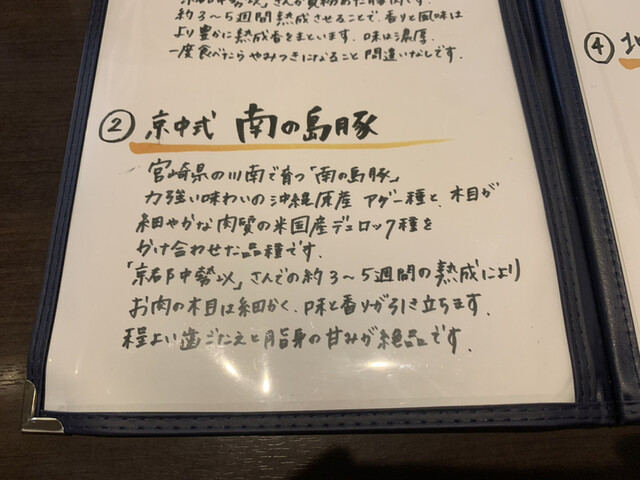 約3~5週間熟成させることで、香りと風味は
より豊かに熟成香をまといます。味は濃厚。
一度食べたらやみつきになること間違いなしです。
② 京中式 南の島豚
宮崎県の川南で育つ「南の島豚」
力強い味わいの沖縄原産 アグー種と、木目が
細やかな肉質の米国産デュロック種を
かけ合わせた品種です。
「京都中勢以」さんでの約3~5週間の熟成により
お肉の木目は細かく、味と香りが引き立ちます。
程よい歯ごたえと脂身の甘みが絶品です。
④